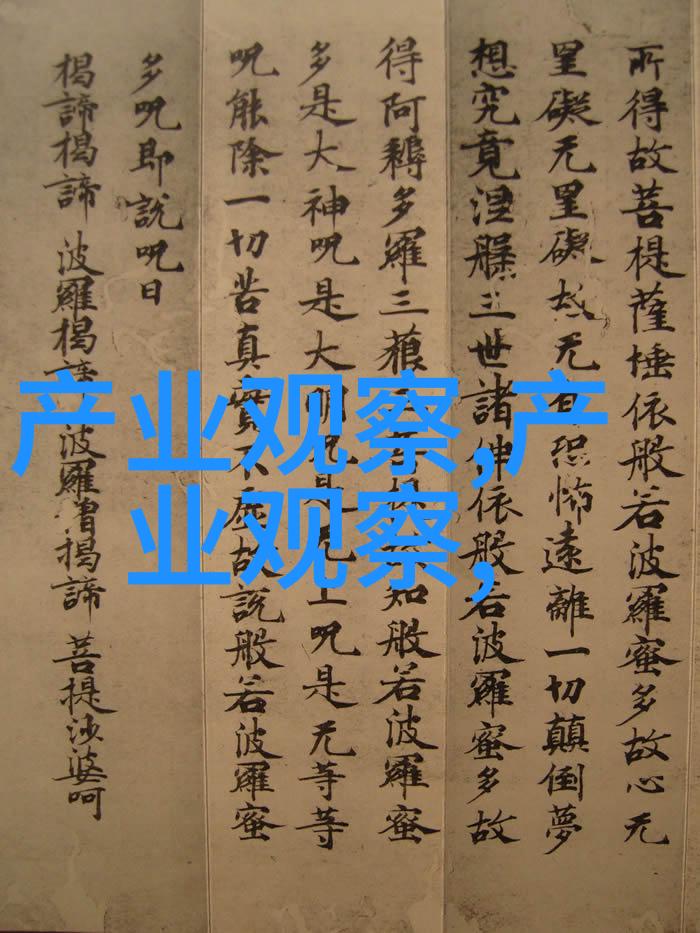 所得故菩提薩埵依般若波羅蜜多故心无
罣礙无罣礙故无有恐怖遠離一切顛倒夢
想究竟涅槃三世諸佛依般若波羅蜜多故
得阿耨多羅三藐三菩提故知般若波羅蜜
多是大神呪是大明呪是无上呪是无等等
呪能除一切苦真實不虛故說般若波羅蜜
多呪即說呪曰
揭諦揭諦 波羅揭諦 波羅僧揭諦 菩提沙婆呵
产业观察,产
业观察,